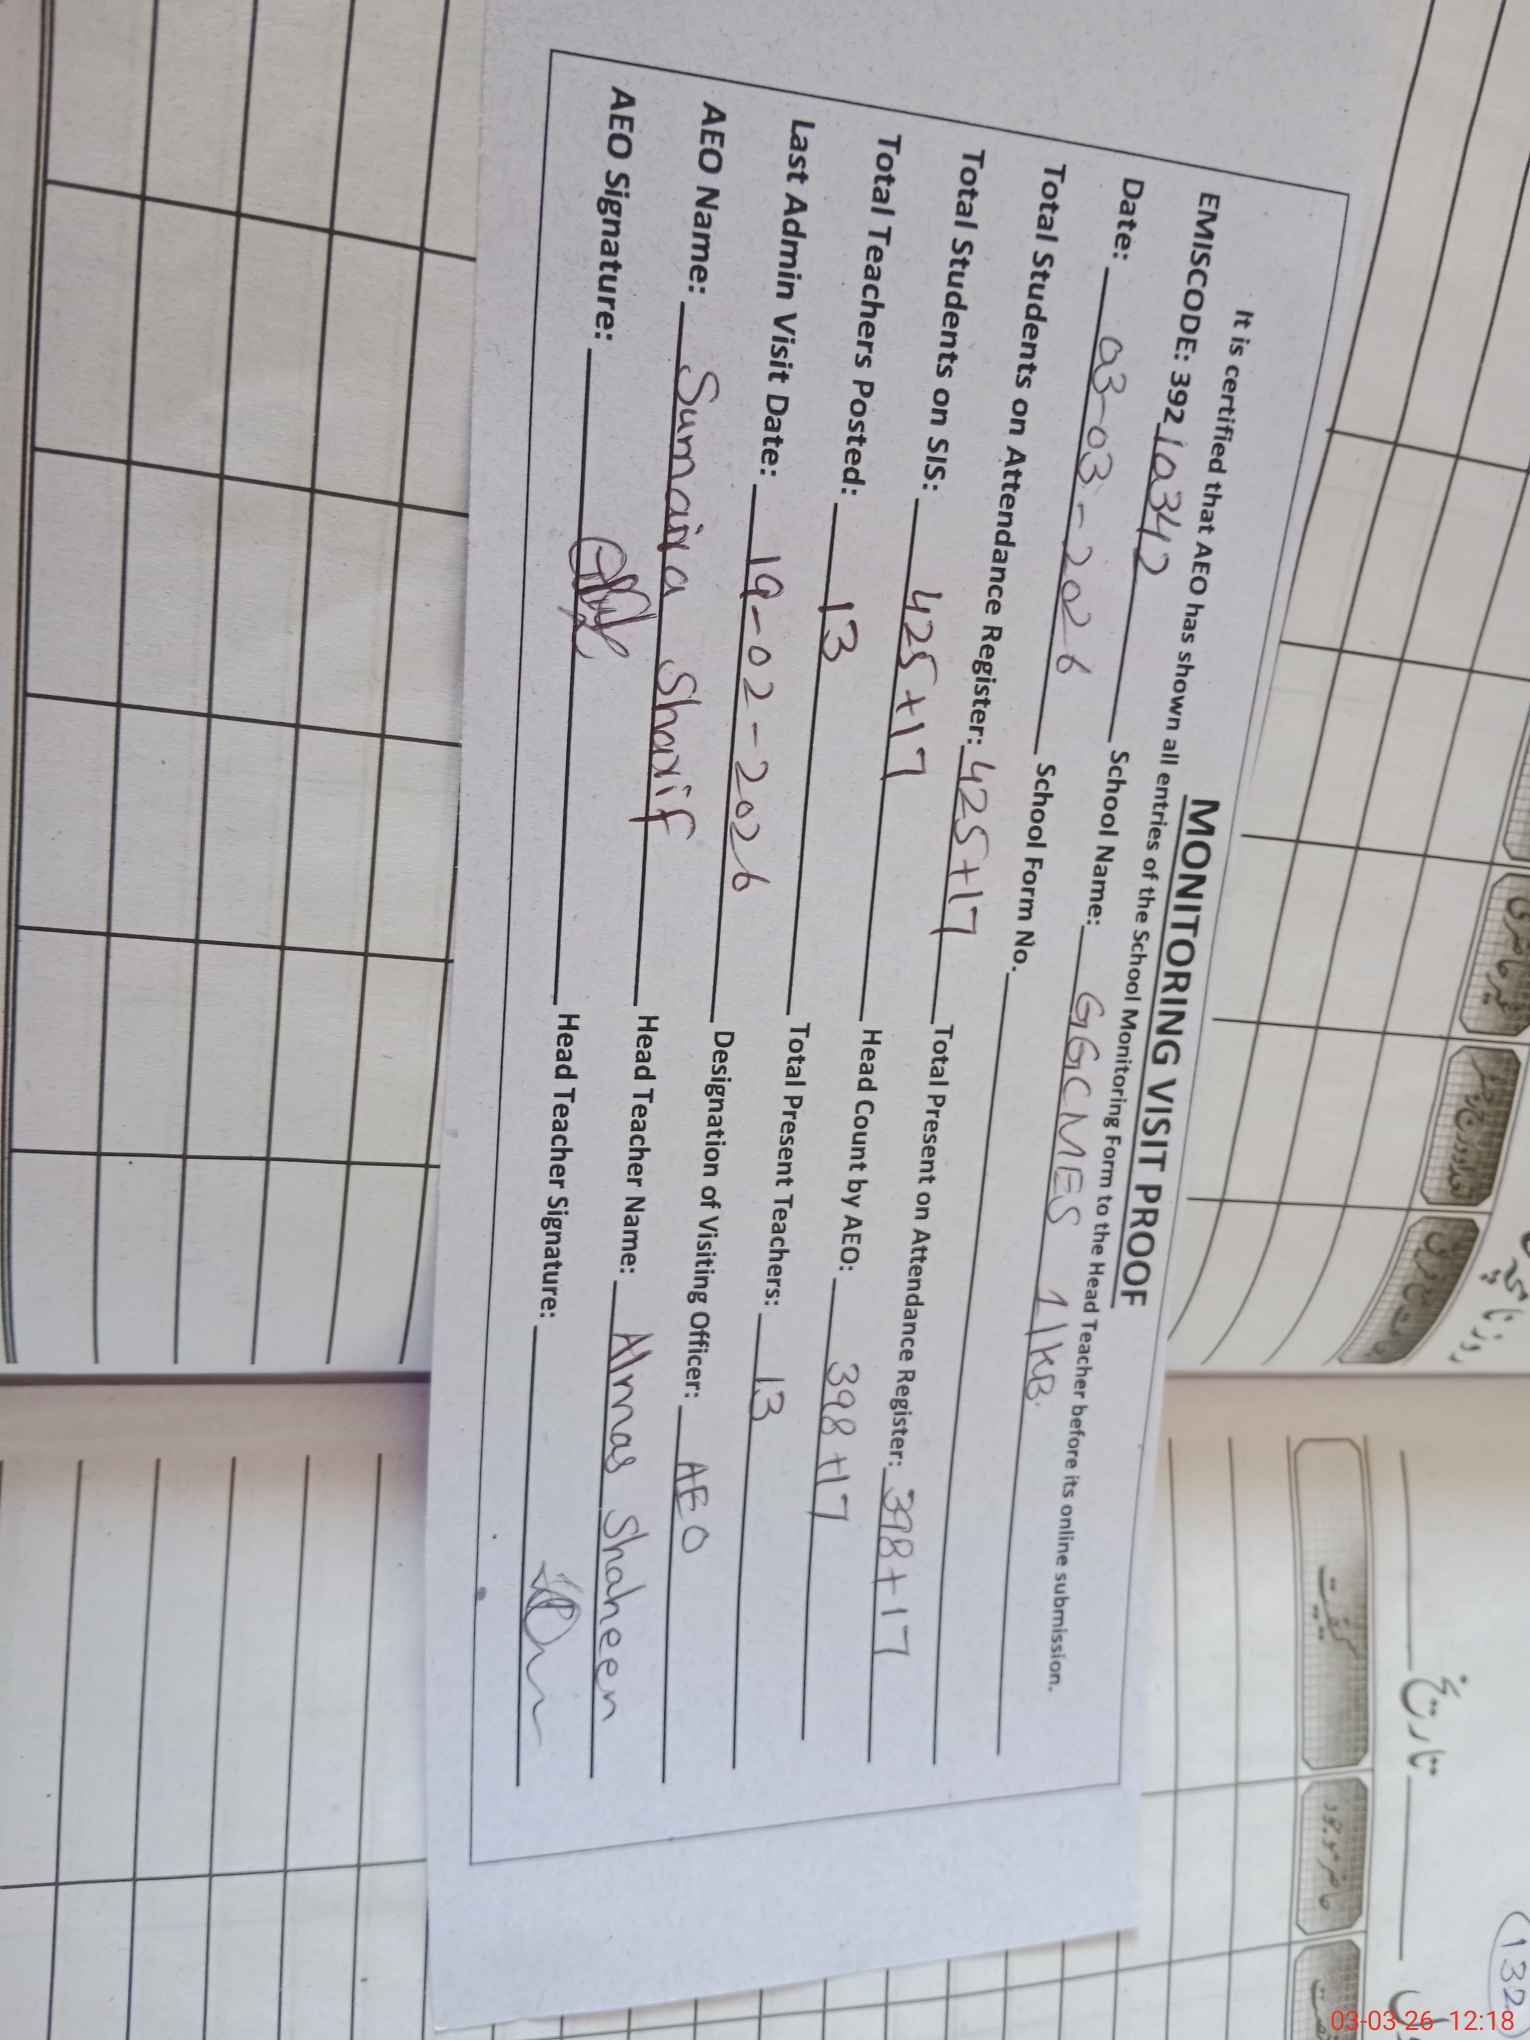 MONITORING VISIT PROOF
It is certified that AEO has shown all entries of the School Monitoring Form to the Head Teacher before its online submission.
EMISCODE: 392 10342 School Name: GGCMES 1/KB.
Date: 03-03-2026 School Form No.
Total Students on Attendance Register: 425+17 Total Present on Attendance Register: 398+17
Total Students on SIS: 425+17 Head Count by AEO: 398+17
Total Teachers Posted: 13 Total Present Teachers: 13
Last Admin Visit Date: 19-02-2026 Designation of Visiting Officer: AEO
AEO Name: Sumaira Sharif Head Teacher Name: Almas Shaheen
AEO Signature: Head Teacher Signature:
روزنامچہ
غیر حاضری
تاریخ
کیفیت
حاضر موجود
132
03-03-26 12:18